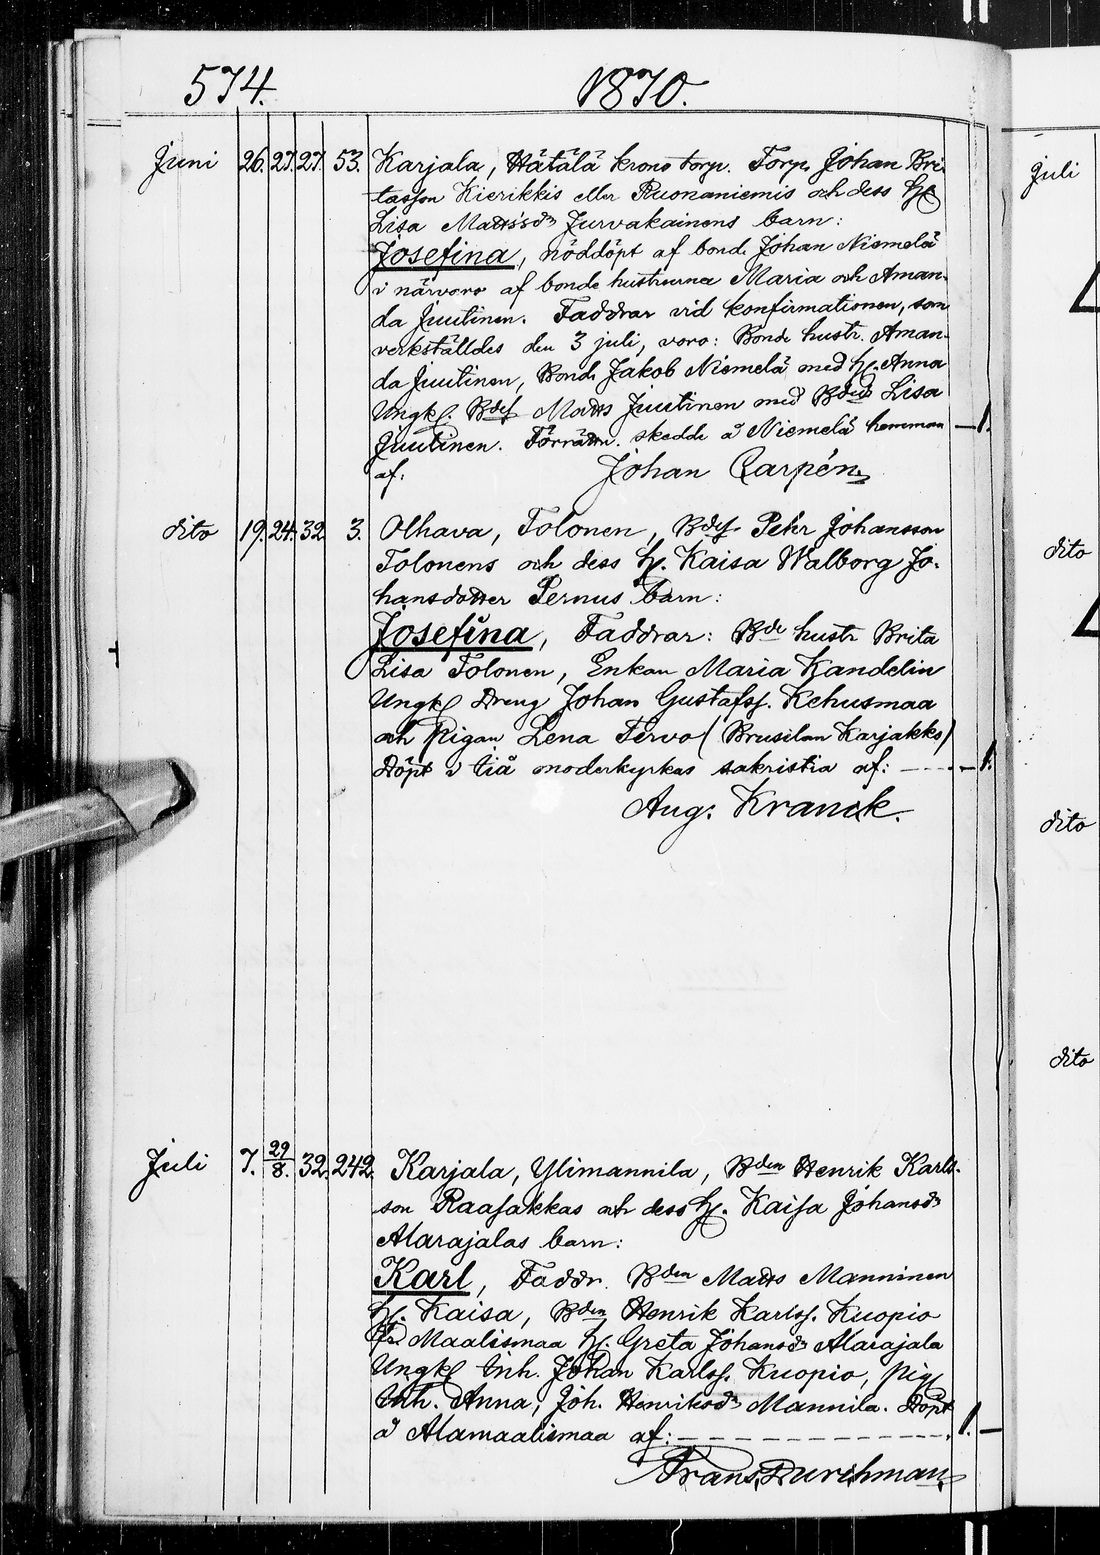 574. 1870.
Juni 26. 27. 27. 53. Karjala, Hätälä krono torp. Torp. Johan Bri-
tasson Kierikkis eller Ruonaniemis och dess H.
Lisa Mattsd:r Jurvakainens barn:
Josefina, nöddöpt af bond. Johan Niemelä
i närvoro af bonde hustrurna Maria och Aman-
da Juutinen. Faddrar vid konfirmationen, som
verkställdes den 3 juli, voro: Bonde hustr. Aman-
da Juutinen, Bond. Jakob Niemelä med H. Anna
Ungk. Bdes. Matts Juutinen med Bdes Lisa
Juutinen. Förrättn. skedde å Niemelä hemman — 1.
af: Johan Carpén
dito 19. 24. 32 3. Olhava, Tolonen, Bdes. Petter Johansson
Tolonens och dess H. Kaisa Walborg Jo-
hansdotter Pernus barn:
Josefina, Faddrar: Bde hustr Brita
Lisa Tolonen, Enkan Maria Kandelin
Ungk Dreng Johan Gustafss. Kehusmaa
och Pigan Lena Tervo (Brusilan Karjakko)
Döpt i Iiå moderkyrkas sakristia af: — 1.
Aug. Kranck.
Juli 7. 29/8. 32. 242. Karjala, Ylimannila, Bden Henrik Karls-
son Raasakkas och dess H. Kaisa Johansd:r
Alarajalas barn:
Karl, Faddr. Bden Matts Manninen
H. Kaisa, Bden Henrik Karlss. Kuopio
Maalismaa H. Greta Johansd:r Alarajala
Ungk Inh. Johan Karlss. Kuopio, pig
Inh. Anna, Joh. Henriksd:r Mannila. Döpt
å Alamaalismaa af: — 1. —
Frans Durchman
Juli
dito
dito
dito